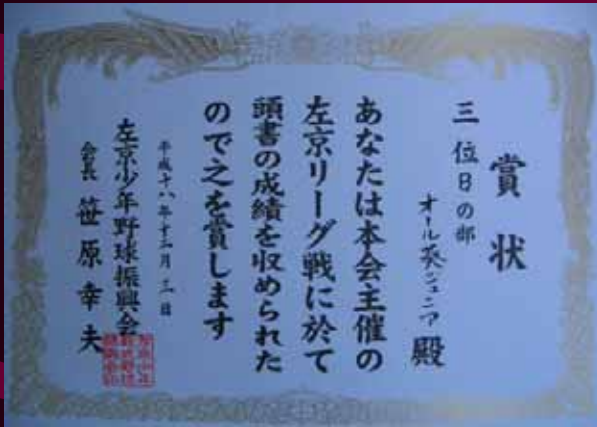 賞状
三位Bの部
オール葵ジュニア殿
あなたは本会主催の
左京リーグ戦に於て
頭書の成績を収められた
ので之を賞します
平成十八年十二月三日
左京少年野球振興会
会長 笹原幸夫